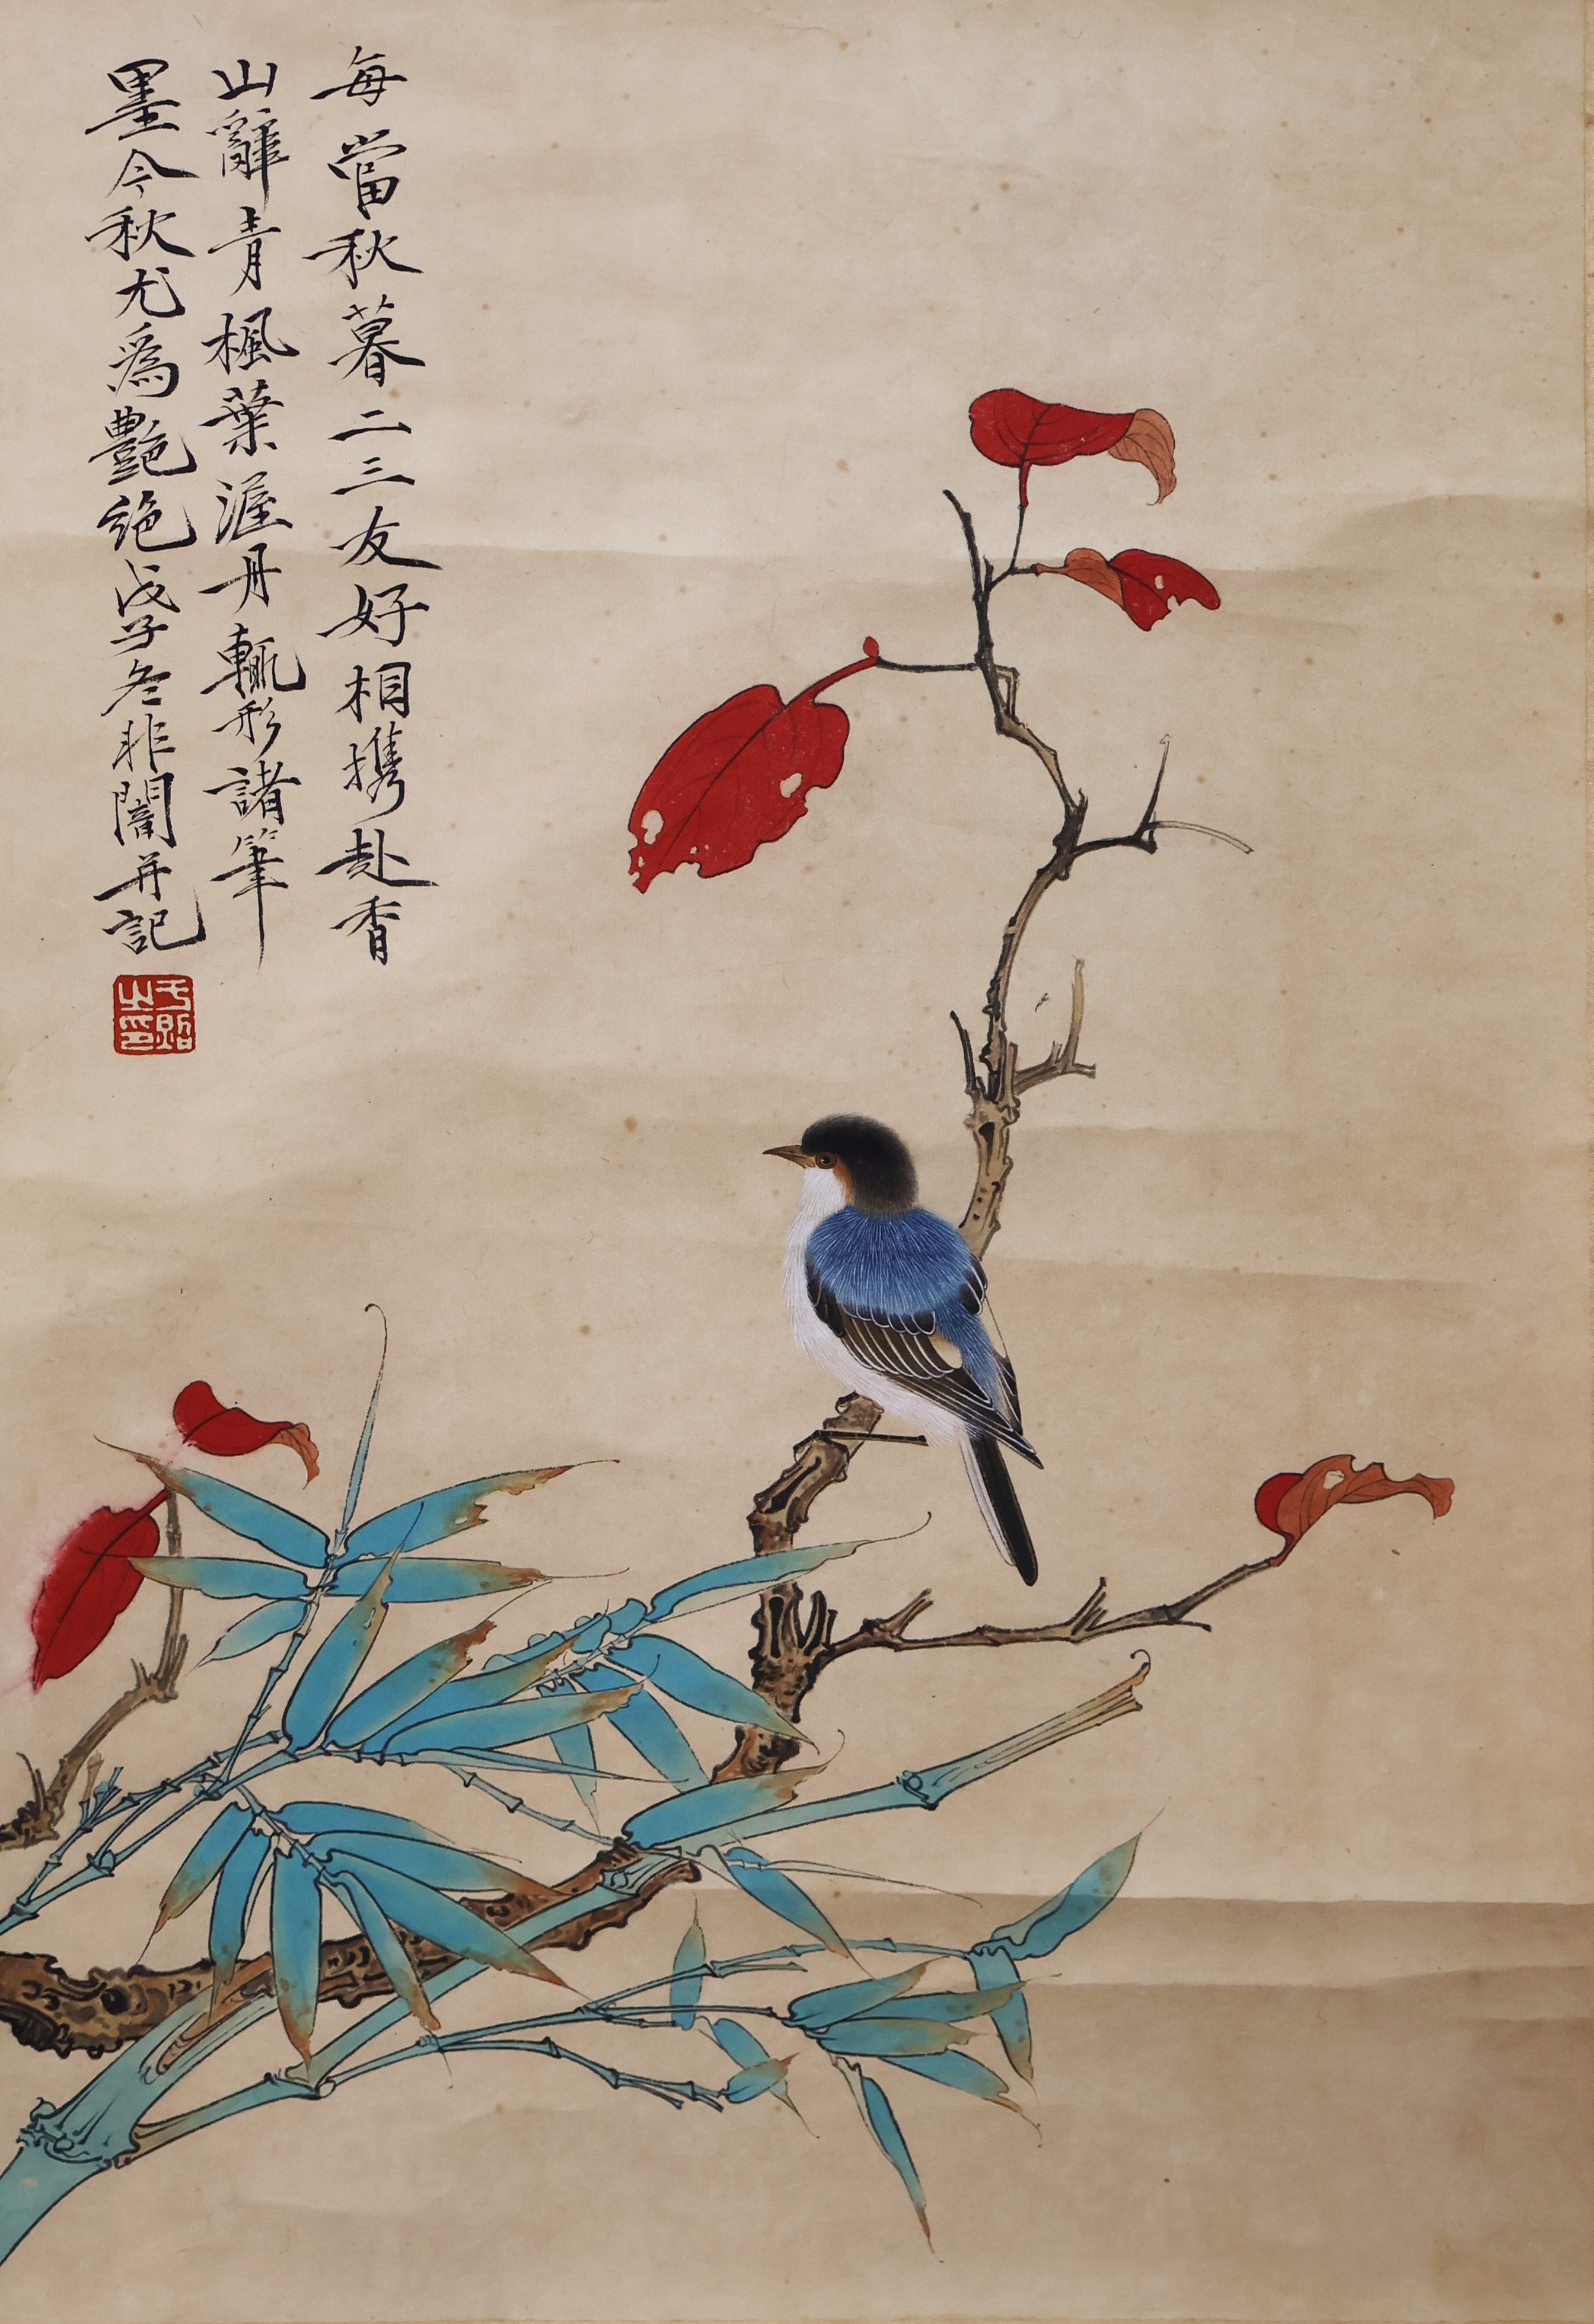 每當秋暮二三友好相携赴香
山辭青楓葉渥丹輒形諸筆
墨今秋尤爲艷絕戊子冬非闇并記
于照之印